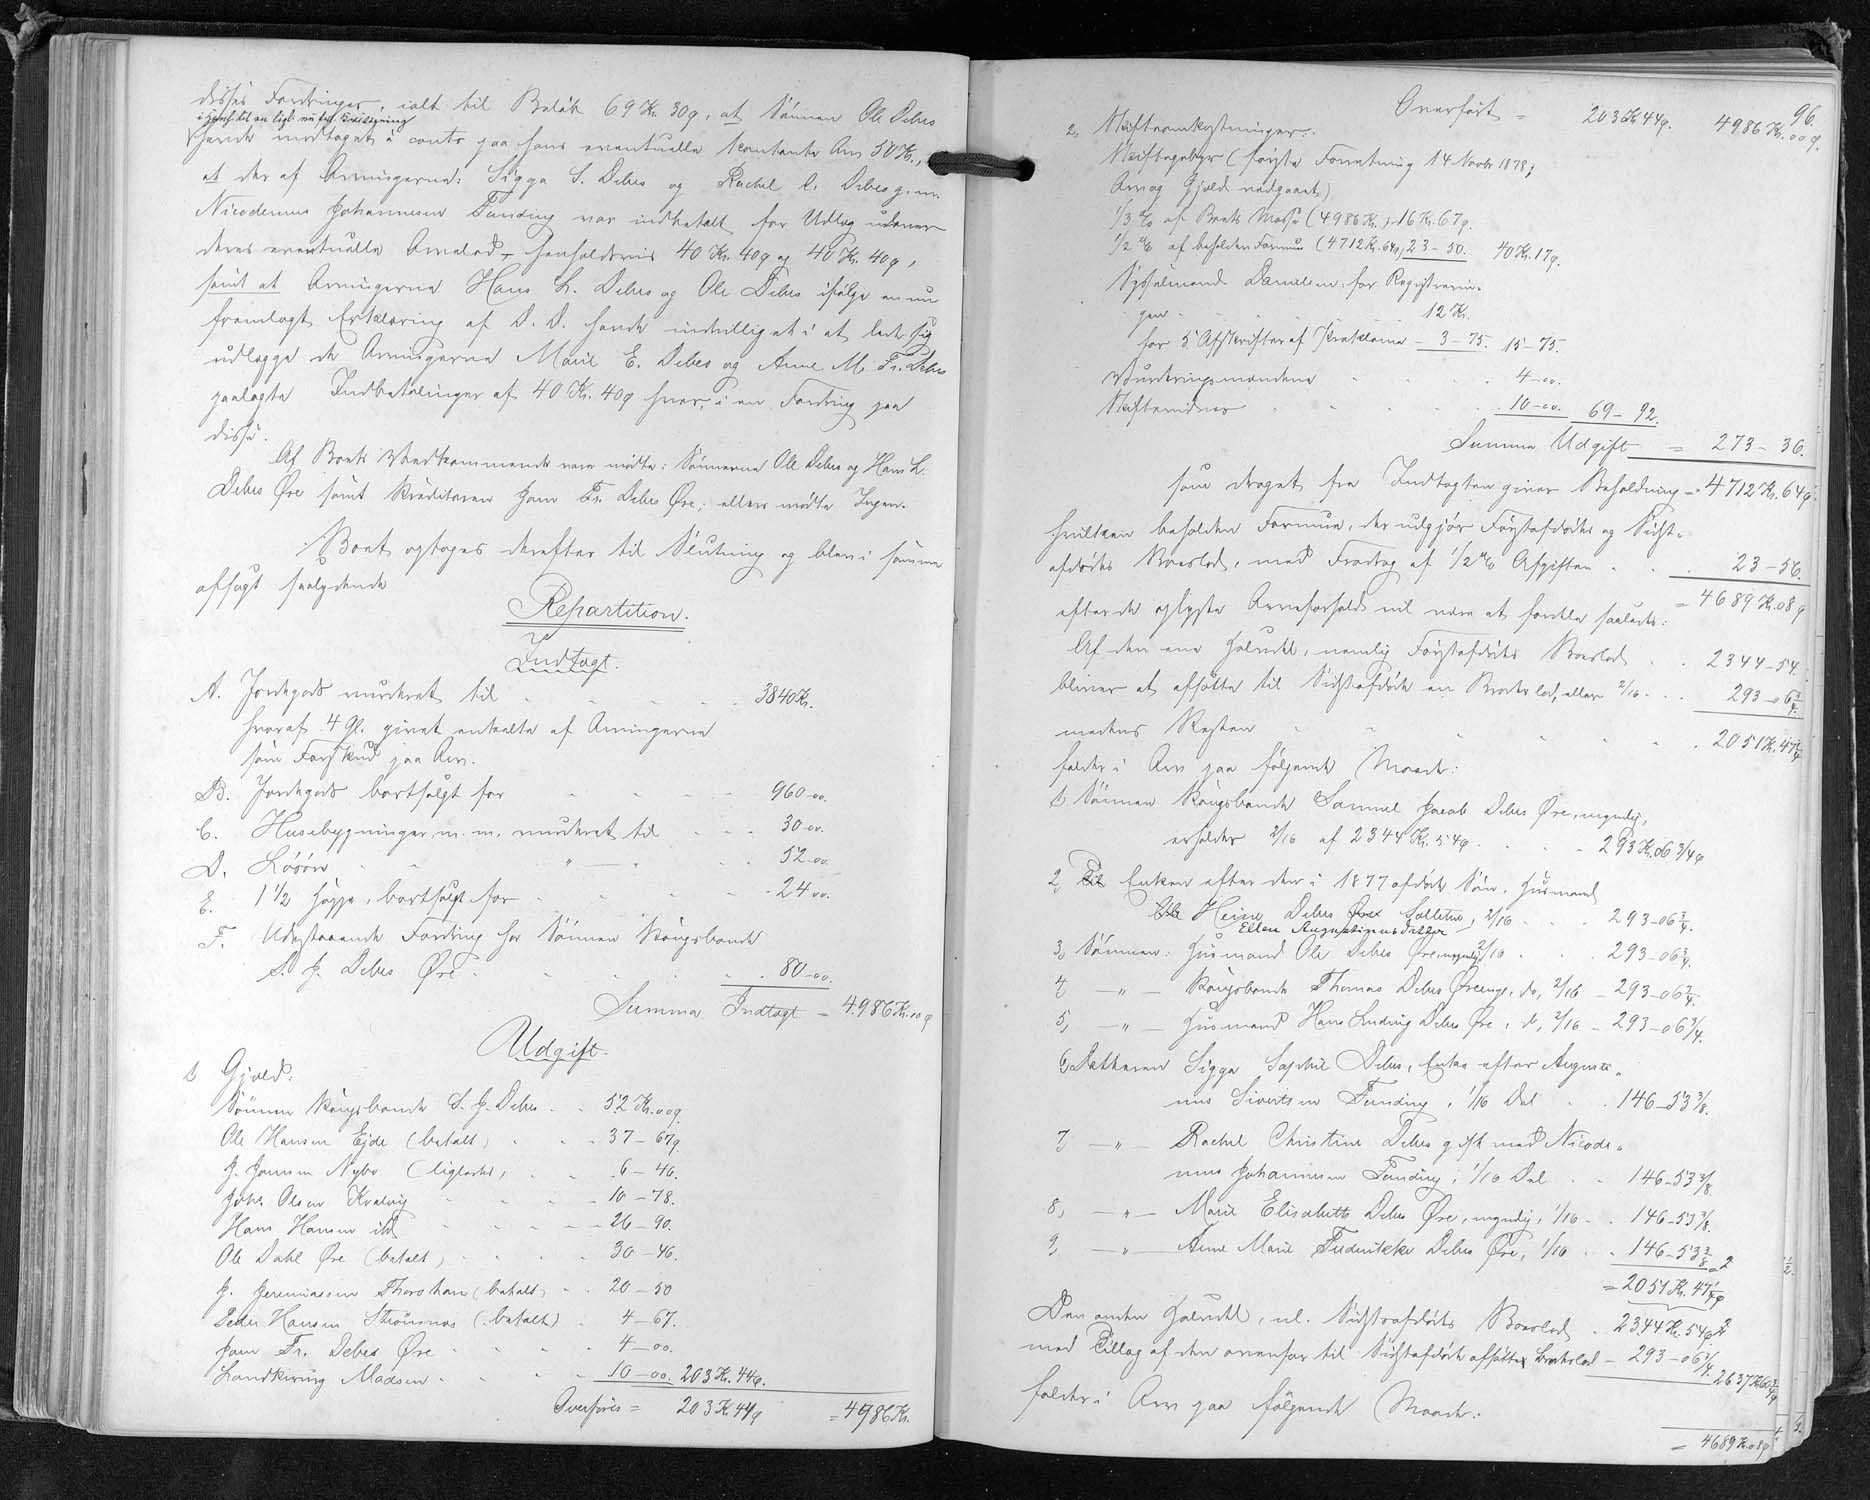 disses Fordringer, ialt til Beløb 69 Kr. 30 ø, at Sønnen Ole Debes
havde modtaget à conto paa hans eventuelle kontante Arv 50 Kr.,
at der af Arvingerne: Sigga S. Debes og Rachel C. Debes g. m.
Nicodemus Johannesen Funding var indbetalt for Udlæg udover
deres eventuelle Arvelod, henholdsvis 40 Kr. 40 ø og 40 Kr. 40 ø,
samt at Arvingerne Hans L. Debes og Ole Debes ifølge en nu
fremlagt Erklæring af D. D. havde indvilliget i at lade sig
udlægge de Arvingerne Marie E. Debes og Anne M. Fr. Debes
paalagte Indbetalinger af 40 Kr. 40 ø hver, i en Fordring paa
disse.
Af Boets Vedkommende vare mødte: Sønnerne Ole Debes og Hans L.
Debes Øre samt Kreditoren Joen Fr. Debes Øre; ellers mødte Ingen.
Boet optoges derefter til Slutning og blev i samme
afsagt saalydende
Repartition.
Indtægt.
A. Jordegods vurderet til 3840 Kr.
hvoraf 4 Gl. givet enkelte af Arvingerne
som Forskud paa Arv.
B. Jordegods bortsolgt for 960-00.
C. Husebygninger m. m. vurderet til 30-00.
D. Løsøre " — " 52-00.
E. 1 1/2 Hoppe, bortsolgt for 24-00.
F. Udestaaende Fordring hos Sønnen Kongsbonde
S. J. Debes Øre 80-00.
Summa Indtægt = 4986 Kr. 00 ø
Udgift.
1, Gjæld:
Sønnen Kongsbonde S. J. Debes 52 Kr. 00 ø.
Ole Hansen Ejde (betalt) 37-67 ø.
J. Joensen Nybo (ligeledes) 6-46.
Johs. Olsen Kvalvig 10-78.
Hans Hansen ibd 26-90.
Ole Dahl Øre (betalt) 30-46.
J. Jeremiassen Thorshavn (betalt) 20-50
Peder Hansen Strømnæs (betalt) 4-67.
Joen Fr. Debes Øre 4-00.
Landkirurg Madsen 10-00. 203 Kr. 44 ø.
Overføres = 203 Kr 44 ø = 4986 Kr.
96.
Overført = 203 Kr 44 ø. 4986 Kr. 00 ø.
2, Skifteomkostninger:
Skiftegebyr (første Forretning 14 Novbr 1878;
Arv og Gjæld vedgaaet)
1/3 % af Boets Masse (4986 Kr.) - 16 Kr. 67 ø.
1/2 % af beholden Formue (4712 Kr. 64 ø) 23-50. 40 Kr. 17 ø.
Sysselmand Danielsen: for Registrerin-
gen 12 Kr.
for 5 Afskrifter af Proklama - 3-75. 15-75.
Vurderingsmændene 4-00.
Skiftevidner 10-00. 69-92.
Summa Udgift = 273-36.
som draget fra Indtægten giver Beholdning = 4712 Kr. 64 ø
hvilken beholden Formue, der udgjør Førstafdødes og Sidst-
afdødes Boeslod, med Fradrag af 1/2 % Afgiften 23-56.
= 4689 Kr. 08 ø
efter de oplyste Arveforhold vil være at fordele saaledes:
Af den ene Halvdel, nemlig Førstafdødes Boeslod 2344-54.
bliver at afsætte til Sidstafdøde en Broderlod, eller 2/16 293-06 3/4.
medens Resten 2051 Kr. 47 1/4
falder i Arv paa følgende Maade:
1, Sønnen Kongsbonde Samuel Jacob Debes Øre, myndig,
erholder 2/16 af 2344 Kr. 54 ø 293 Kr. 06 3/4 ø
2, Enken efter den i 1877 afdøde Søn, Husmand
Heine Debes Selletræ, 2/16 293-06 3/4.
Ellen Augustinusdatter
3, Sønnen: Husmand Ole Debes Øre, myndig, 2/16 293-06 3/4.
4, — " — Kongsbonde Thomas Debes Øreeng. do, 2/16 - 293-06 3/4.
5, — " — Husmand Hans Ludvig Debes Øre, d., 2/16 - 293-06 3/4.
6, Datteren Sigga Sophie Debes, Enke efter Augusti-
nus Sivertsen Funding, 1/16 Del 146-53 3/8.
7, — " — Rachel Christine Debes gift med Nicode-
mus Johannesen Funding, 1/16 Del 146-53 3/8.
8, — " — Marie Elisabeth Debes Øre, myndig, 1/16 146-53 3/8.
9, — " — Anne Marie Frederikke Debes Øre, 1/16 146-53 3/8
= 2051 Kr. 47 1/4 ø
Den anden Halvdel, nl. Sidstafdødes Boeslod 2344 Kr. 54 ø
med Tillæg af den ovenfor til Sidstafdøde afsatte Broderlod - 293-06 3/4. 2637 Kr 60 3/4 ø
falder i Arv paa følgende Maade:
= 4689 Kr. 08 ø